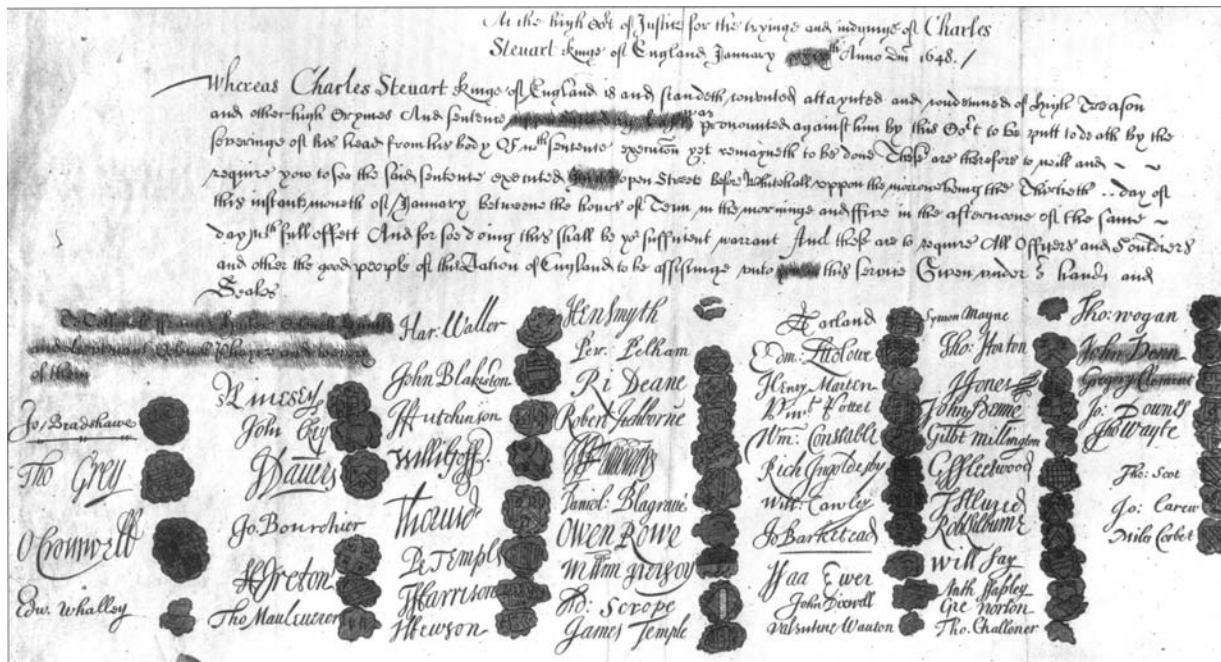 At the high Cort of Justice for the tryinge and iudginge of Charles
Steuart kinge of England January th Anno Dm 1648./
Whereas Charles Steuart kinge of England is and standeth convicted attaynted and condemned of high Treason
and other high Crymes And sentence was pronounced against him by this Cort to be putt to death by the
severinge of his head from his body Of wch sentence execucon yet remayneth to be done These are therefore to will and
require you to see the said sentence executed open Streete before Whitehall uppon the morrowe being the Thirtieth day of
this instante moneth of January betweene the houres of Tenn in the morninge and ffive in the afternoone of the same
day wth full effect And for soe doing this shall be yor sufficient warrant And these are to require All Officers and Souldiers
and other the good people of this Nation of England to be assistinge unto this service Given under or hands and
Seales
Jo Bradshawe
Tho Grey
O Cromwell
Edw. Whalley
M Livesey
John Okey
J Dauers
Jo. Bourchier
H Ireton
Tho Mauleuerer
Har. Waller
John Blakiston
J Hutchinson
Willi Goff
Tho Pride
Pe Temple
T Harrison
J Hewson
Hen Smyth
Per. Pelham
Ri Deane
Robert Tichborne
Daniel Blagraue
Owen Rowe
William Purefoy
Ad: Scrope
James Temple
A Garland
Edm: Ludlowe
Henry Marten
Vinct Potter
Wm: Constable
Rich Ingoldesby
Will: Cawley
Jo Barkstead
Isaa Ewer
John Dixwell
Valentine Wauton
Symon Mayne
Tho: Horton
J Jones
John Penne
Gilbt Millington
G ffleetwood
J Alured
Robt Lilburne
Will Say
Anth Stapley
Gre Norton
Tho. Challoner
Tho: Wogan
John Venn
Gregory Clement
Jo: Downes
Tho Wayte
Tho: Scot
Jo: Carew
Miles Corbet